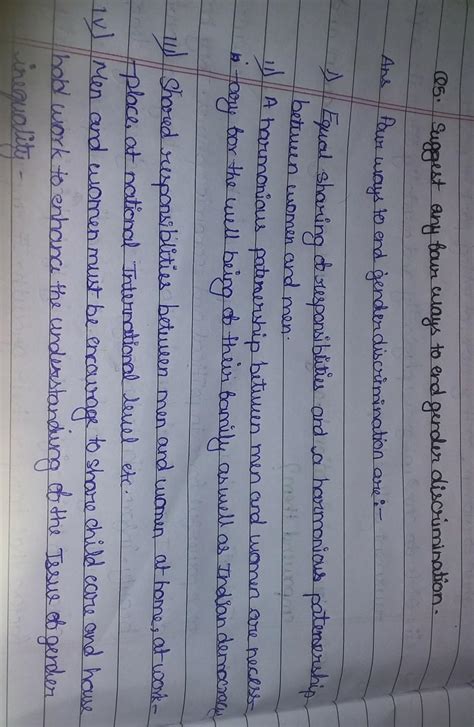 Q5. Suggest any four ways to end gender discrimination.
Ans Four ways to end gender discrimination are:-
i) Equal sharing of responsibilities and a harmonious patenership
between women and men.
ii) A harmonious patenership between men and women are necess
-ary for the well being of their family as well as Indian democracy
iii) Shared responsibilities between men and women at home, at work-
-place, at national International level etc.
iv) Men and women must be encourage to share child care and house
hold work to enhance the understanding of the Issue of gender
inequality -